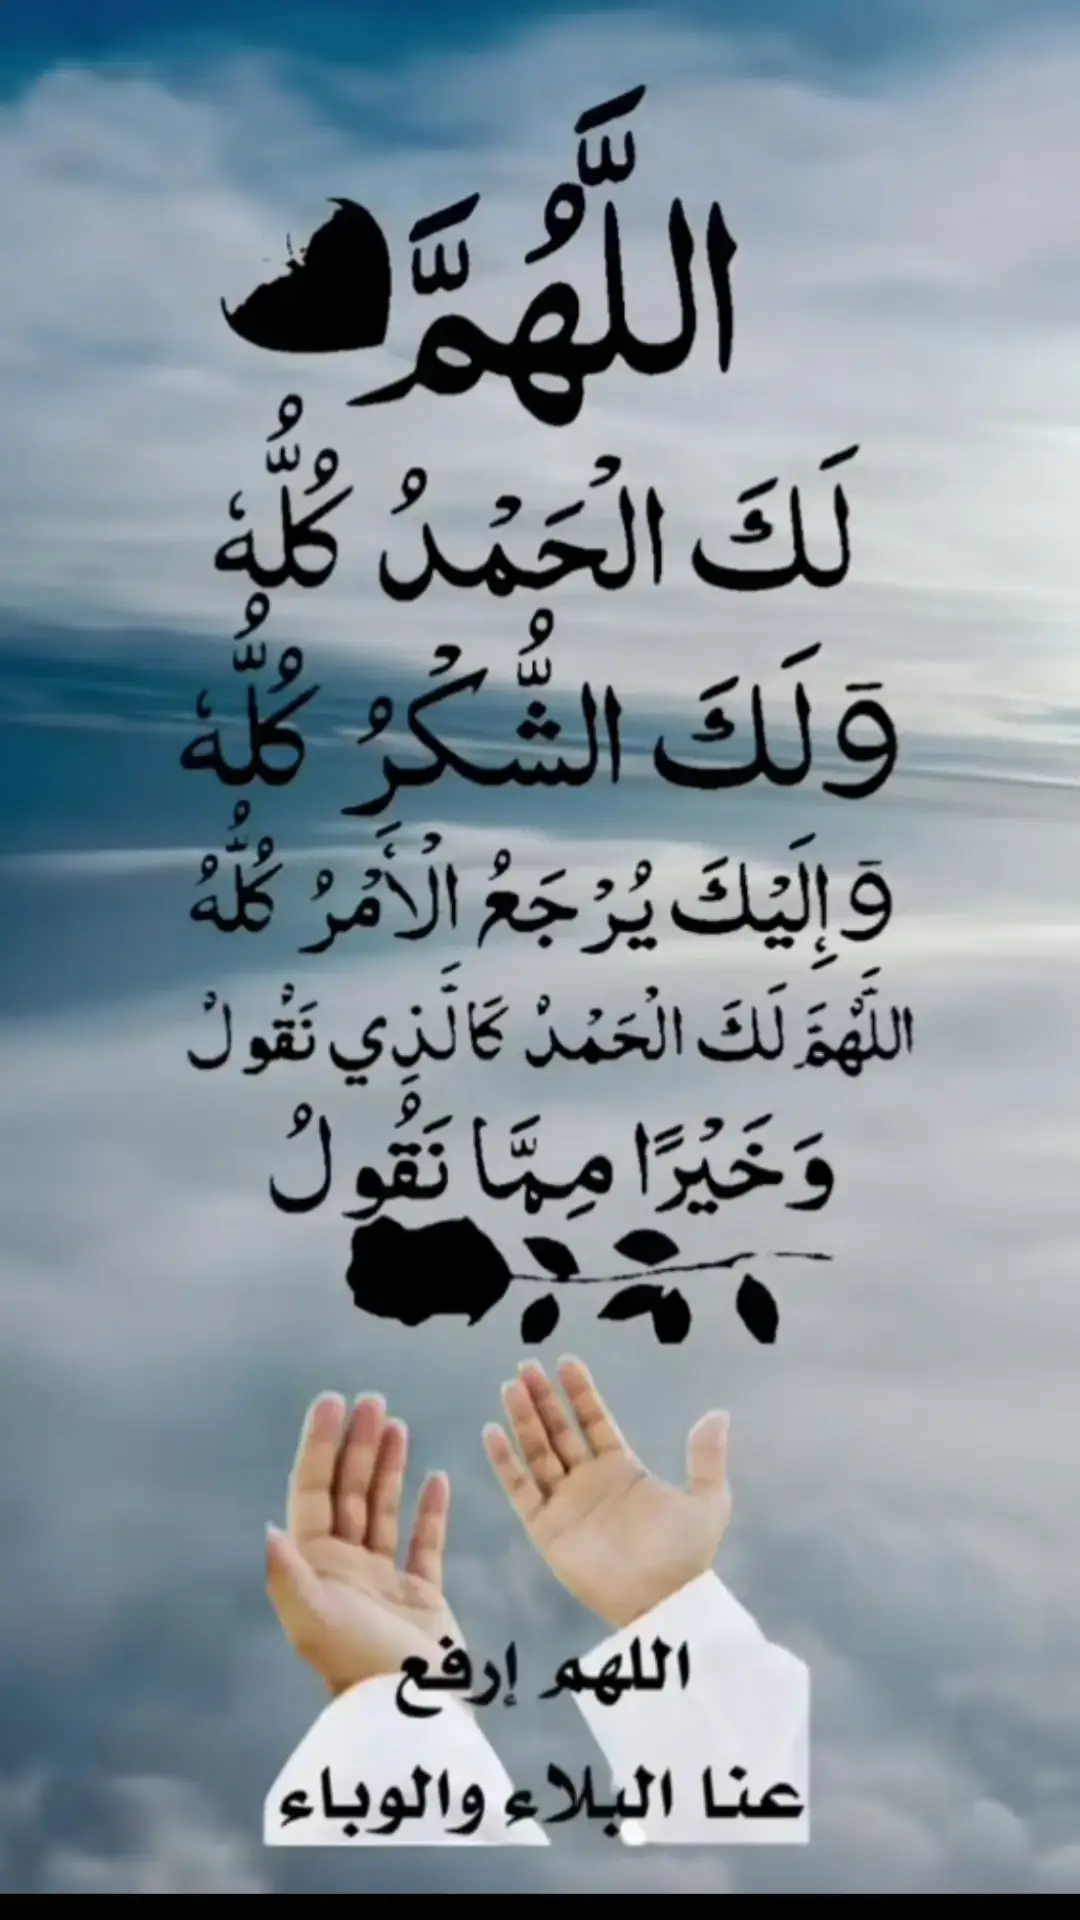 اللَّهُمَّ
لَكَ الْحَمْدُ كُلُّهُ
وَلَكَ الشُّكْرُ كُلُّهُ
وَإِلَيْكَ يُرْجَعُ الْأَمْرُ كُلُّهُ
اللَّهُمَّ لَكَ الْحَمْدُ كَالَّذِي نَقُولُ
وَخَيْرًا مِمَّا نَقُولُ
اللهم إرفع
عنا البلاء والوباء